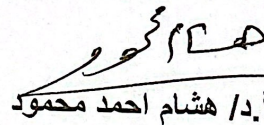 هشام محمود
أ.د/ هشام احمد محمود